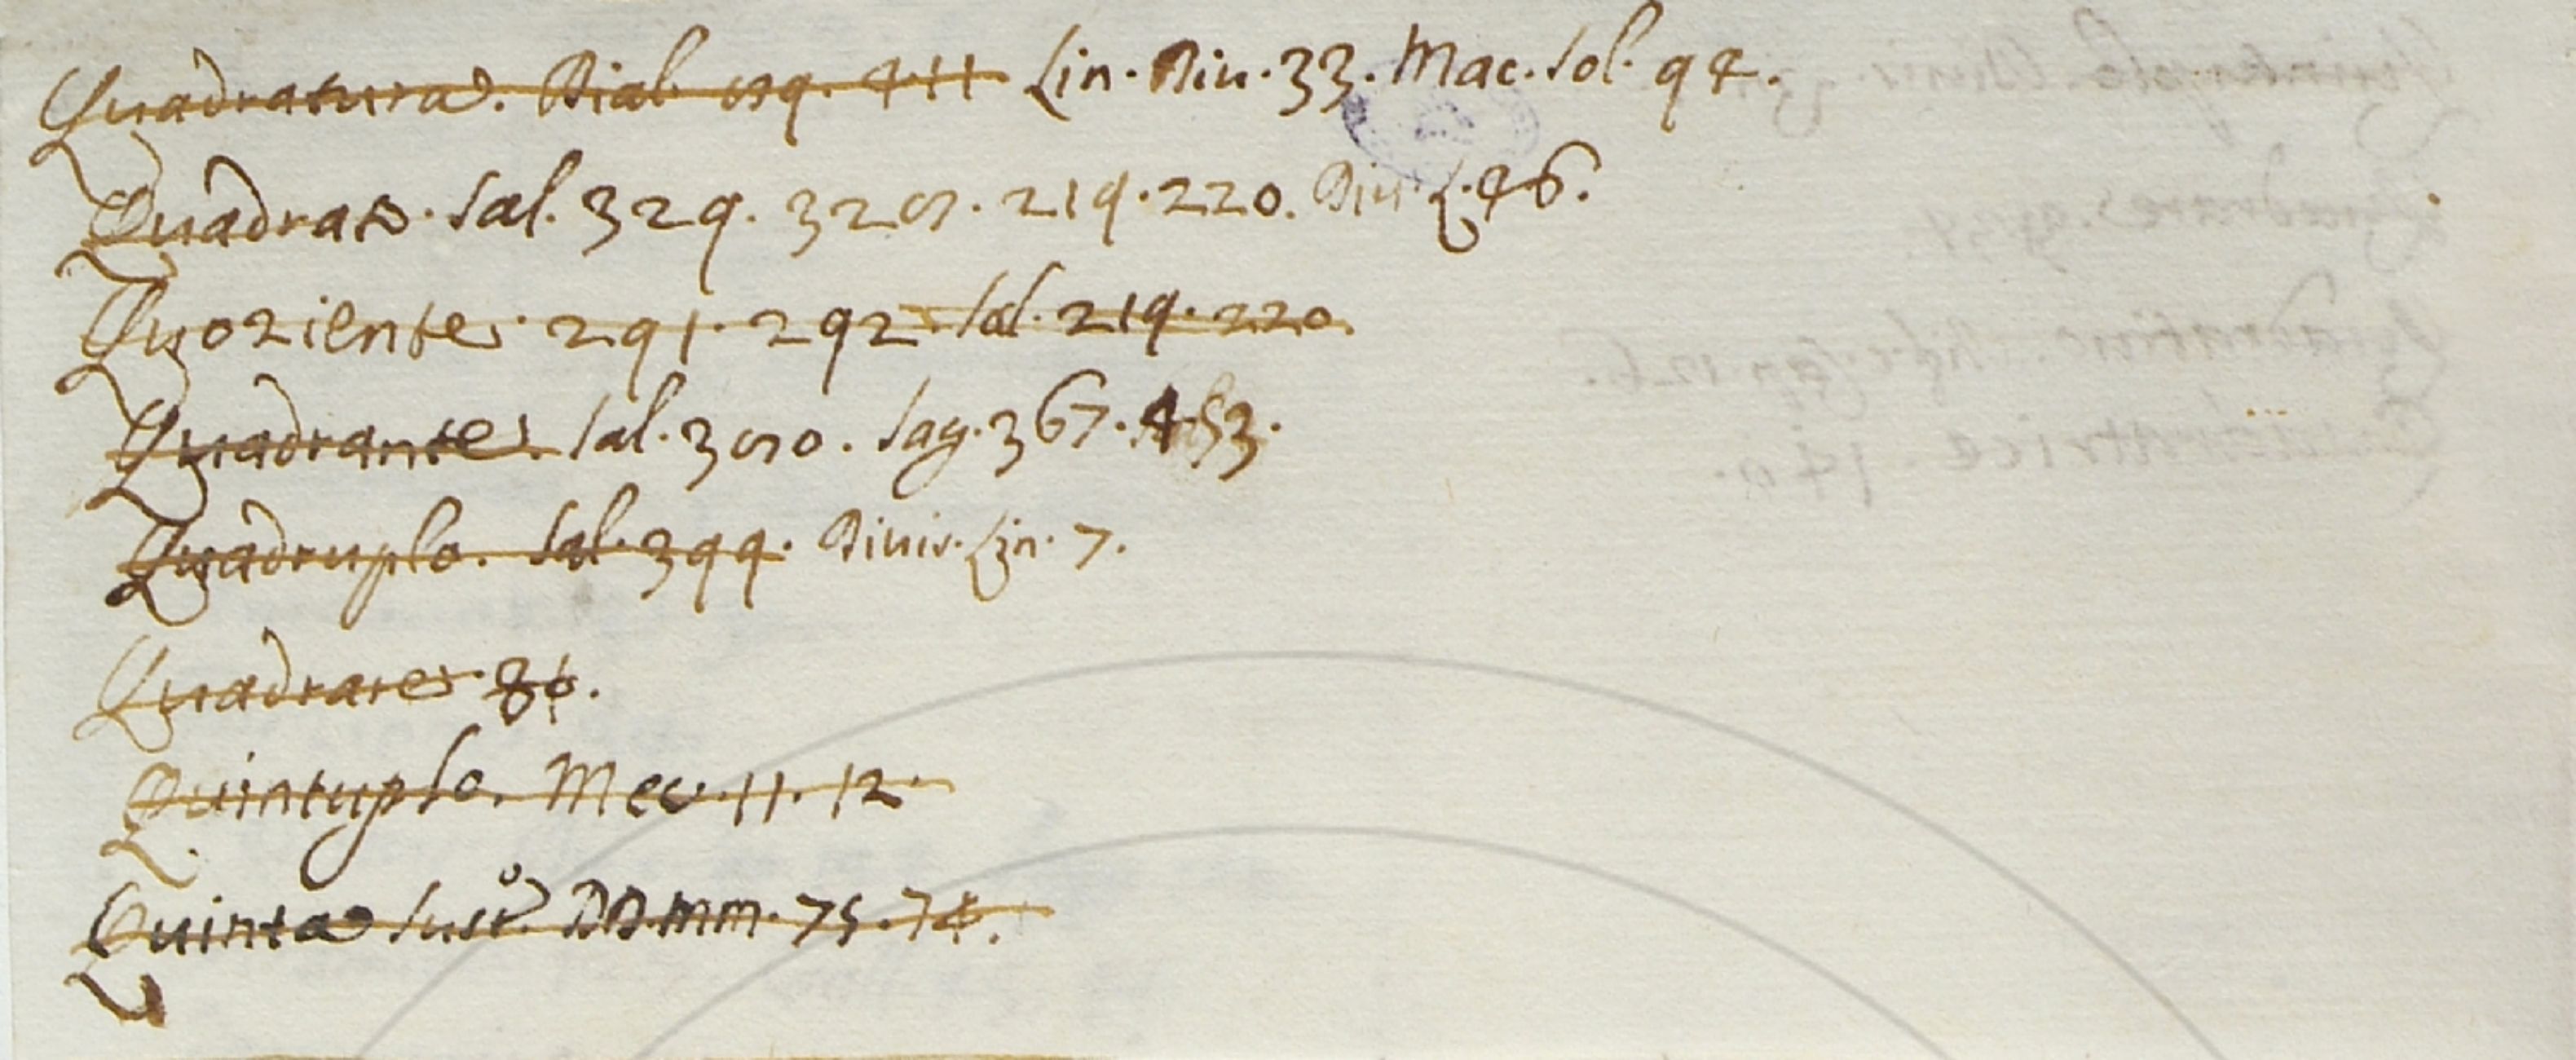 Quadratura. Dial. 59. 411 Lin. Diu. 33. Mac. Sol. 94.
Quadrato. Sal. 329. 325. 219. 220. Diu. L. 46.
Quoziente. 291. 292. Sal. 219. 220.
Quadrante. Sal. 350. Sag. 367. 453.
Quadruplo. Sal. 399. Diuis. Lin. 7.
Quadrare.
Quintuplo. Mec. 11. 12.
Quinta DD. mm. 75. 74.